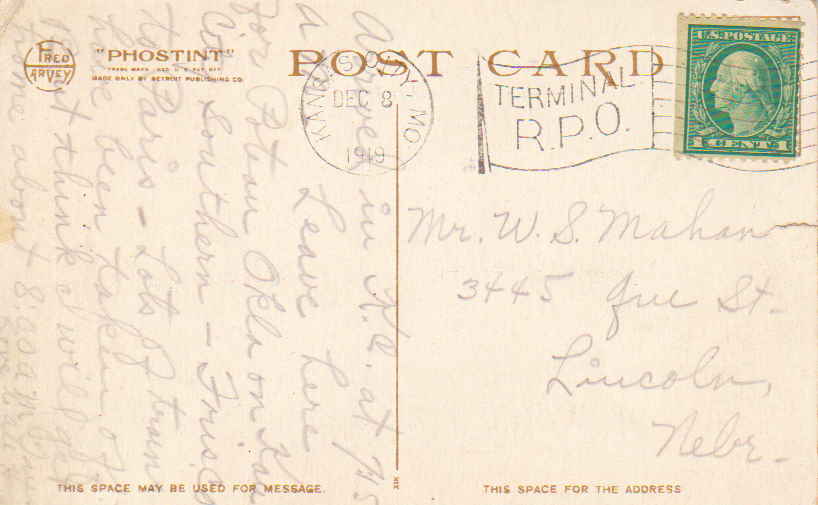 FRED HARVEY
"PHOSTINT"
MADE ONLY BY DETROIT PUBLISHING CO.
POST CARD
KANSAS CITY, MO.
DEC 8
1919
TERMINAL
R.P.O.
U.S. POSTAGE
1 CENT 1
Arrived in K.C. at 7:45
a Leave here
for Poteau Okla on Kas
City Southern - Frisco
to Paris - Lots of trains
have been taken off
think I will get
home about 8:00 a.m.
Mr. W. S. Mahan
3445 St.
Lincoln,
Nebr.
THIS SPACE MAY BE USED FOR MESSAGE.
THIS SPACE FOR THE ADDRESS